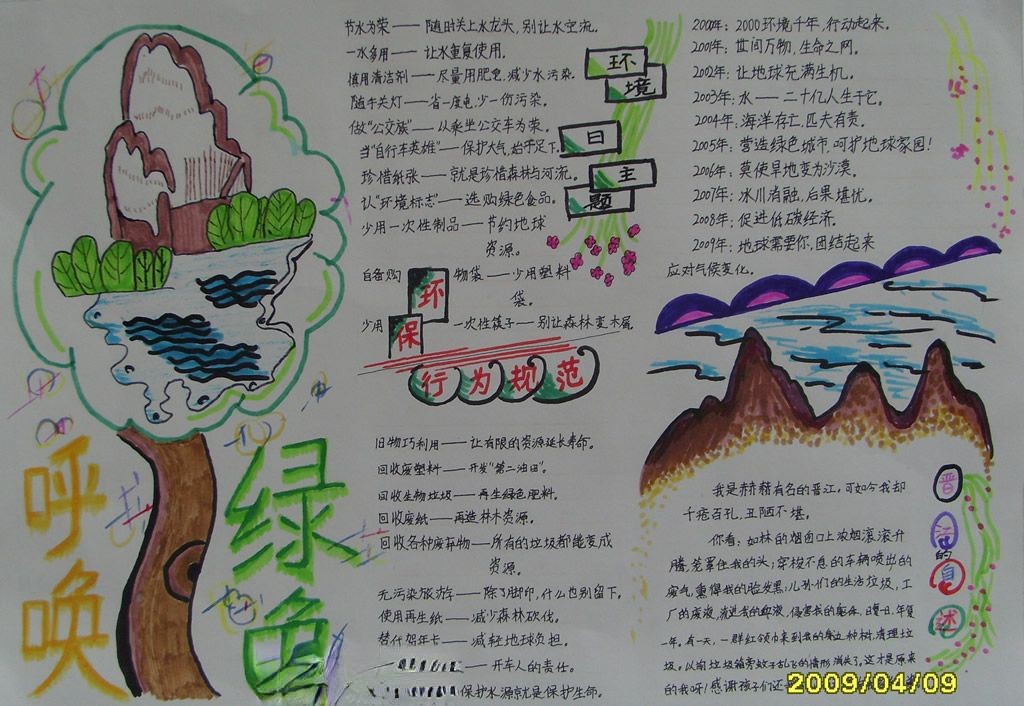 呼唤
绿色
节水为荣——随时关上水龙头，别让水空流。
一水多用——让水重复使用。
慎用清洁剂——尽量用肥皂，减少水污染。
随手关灯——省一度电，少一份污染。
做“公交族”——以乘坐公交车为荣。
当“自行车英雄”——保护大气，始于足下。
珍惜纸张——就是珍惜森林与河流。
认“环境标志”——选购绿色食品。
少用一次性制品——节约地球
资源。
自备购物袋——少用塑料
袋。
少用一次性筷子——别让森林变木屑。
环保
行为规范
旧物巧利用——让有限的资源延长寿命。
回收废塑料——开发“第二油田”。
回收生物垃圾——再生绿色肥料。
回收废纸——再造林木资源。
回收各种废弃物——所有的垃圾都能变成
资源。
无污染旅游——除了脚印，什么也别留下。
使用再生纸——减少森林砍伐。
替代贺年卡——减轻地球负担。
——开车人的责任。
保护水源就是保护生命。
环境日主题
2000年：2000环境千年，行动起来。
2001年：世间万物，生命之网。
2002年：让地球充满生机。
2003年：水——二十亿人生于它。
2004年：海洋存亡，匹夫有责。
2005年：营造绿色城市，呵护地球家园！
2006年：莫使旱地变为沙漠。
2007年：冰川消融，后果堪忧。
2008年：促进低碳经济。
2009年：地球需要你，团结起来
应对气候变化。
晋江的自述
我是赫赫有名的晋江，可如今我却
千疮百孔，丑陋不堪。
你看：如林的烟囱口上浓烟滚滚升
腾，笼罩住我的头；穿梭不息的车辆喷出的
废气，熏得我的脸发黑；人们的生活垃圾，工
厂的废液，流进我的血液，侵害我的躯体。日复一日，年复
一年。有一天，一群红领巾来到我的身边种树，清理垃
圾。以前垃圾箱旁蚊子乱飞的情形消失了。这才是原来
的我呀！感谢孩子们还
2009/04/09